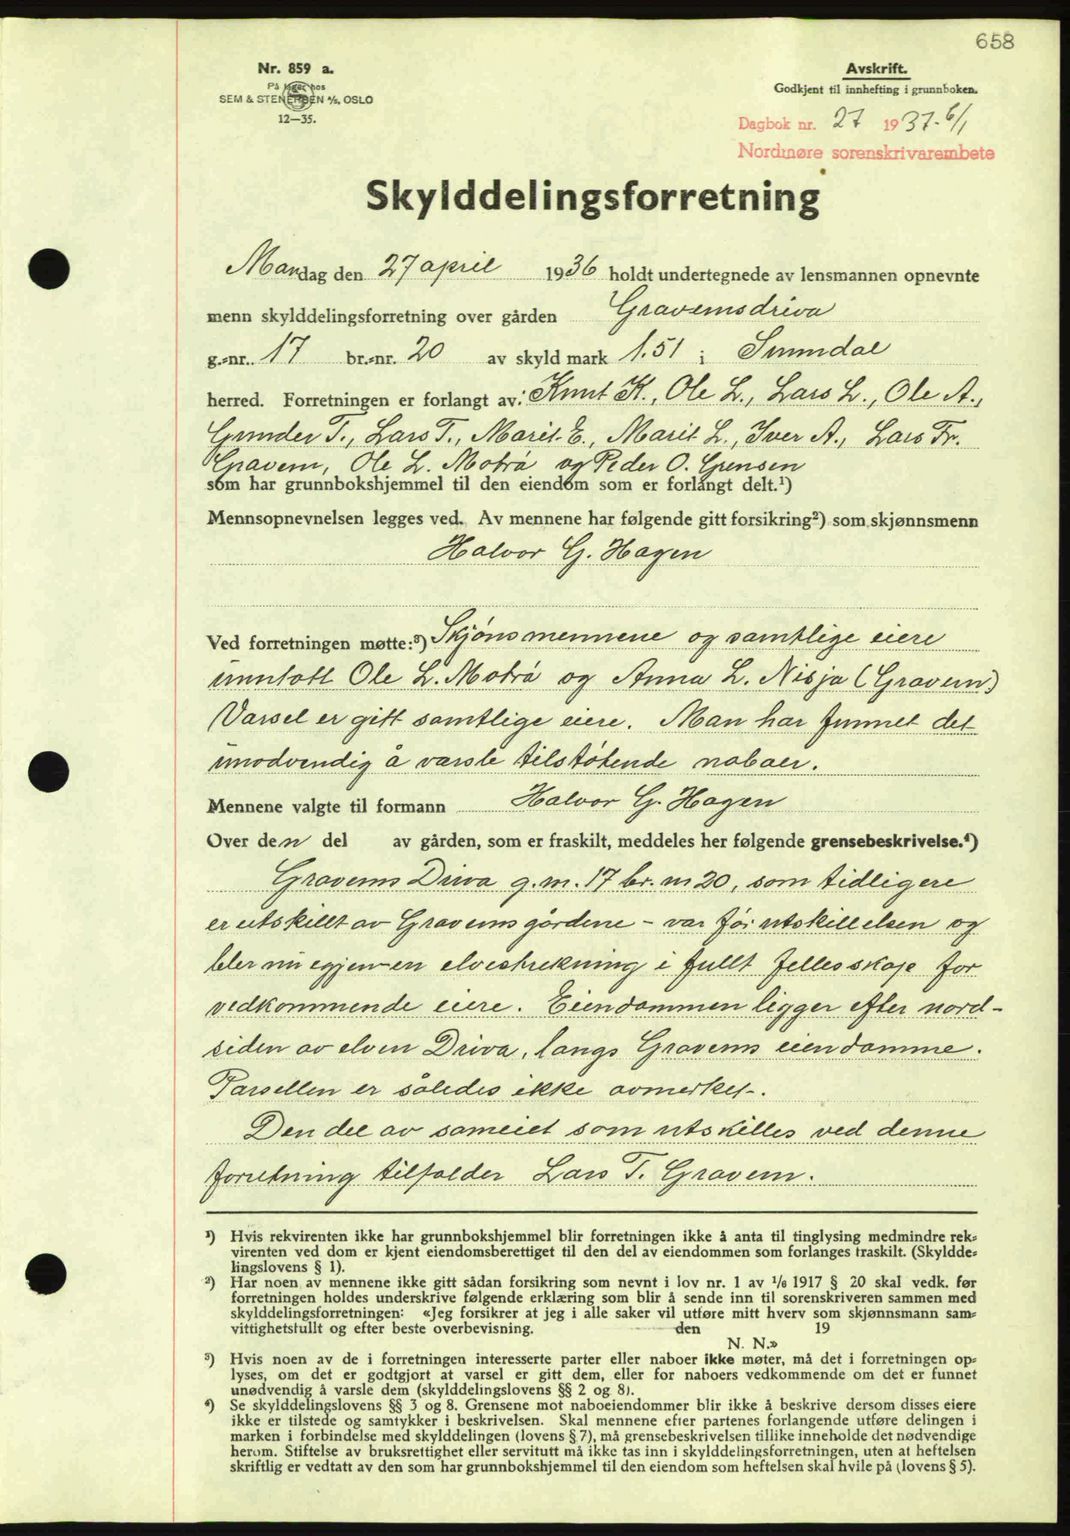 658
Nr. 859 a.
På lager hos
SEM & STENERSEN A/S, OSLO
12—35.
Avskrift.
Godkjent til innhefting i grunnboken.
Dagbok nr. 27 1937-6/1
Nordmøre sorenskrivarembete
Skylddelingsforretning
Mandag den 27 april 1936 holdt undertegnede av lensmannen opnevnte
menn skylddelingsforretning over gården Gravemsdriva
g.-nr. 17 br.-nr. 20 av skyld mark 1.51 i Sunndal
herred. Forretningen er forlangt av: Knut K., Ole L., Lars L., Ole A.,
Gunder T., Lars T., Marit E., Marit L., Iver A., Lars Fr.
Gravem, Ole L. Motrø og Peder O. Grensen
som har grunnbokshjemmel til den eiendom som er forlangt delt.¹)
Mennsopnevnelsen legges ved. Av mennene har følgende gitt forsikring²) som skjønnsmenn
Halvor G. Hagen
Ved forretningen møtte:³) Skjønsmennene og samtlige eiere
unntatt Ole L. Motrø og Anna L. Nisja (Gravem)
Varsel er gitt samtlige eiere. Man har funnet det
unødvendig å varsle tilstøtende naboer.
Mennene valgte til formann Halvor G. Hagen
Over den del av gården, som er fraskilt, meddeles her følgende grensebeskrivelse.⁴)
Gravems Driva g.nr. 17 br.nr 20, som tidligere
er utskillt av Gravemsgårdene - var før utskillelsen og
blev nu egjen en elvestrekning i fullt fellesskap for
vedkommende eiere. Eiendommen ligger efter nord-
siden av elven Driva, langs Gravems eiendomme.
Parsellen er således ikke avmerket.
Den del av sameiet som utskilles ved denne
forretning tilfalder Lars T. Gravem.
¹) Hvis rekvirenten ikke har grunnbokshjemmel blir forretningen ikke å anta til tinglysing medmindre rek-
virenten ved dom er kjent eiendomsberettiget til den del av eiendommen som forlanges fraskilt. (Skyldde-
lingslovens § 1).
²) Har noen av mennene ikke gitt sådan forsikring som nevnt i lov nr. 1 av 1/6 1917 § 20 skal vedk. før
forretningen holdes underskrive følgende erklæring som blir å sende inn til sorenskriveren sammen med
skylddelingsforretningen: «Jeg forsikrer at jeg i alle saker vil utføre mitt hverv som skjønnsmann sam-
vittighetsfullt og efter beste overbevisning. den 19
N. N.»
³) Hvis noen av de i forretningen interesserte parter eller naboer ikke møter, må det i forretningen op-
lyses, om det er godtgjort at varsel er gitt dem, eller for naboers vedkommende om det er funnet
unødvendig å varsle dem (skylddelingslovens §§ 2 og 8).
⁴) Se skylddelingslovens §§ 3 og 8. Grensene mot naboeiendommer blir ikke å beskrive dersom disses eiere
ikke er tilstede og samtykker i beskrivelsen. Skal mennene efter partenes forlangende utføre delingen i
marken i forbindelse med skylddelingen (lovens § 7), må grensebeskrivelsen tillike inneholde det nødvendige
herom. Stiftelse av bruksrettighet eller servitutt må ikke tas inn i skylddelingsforretningen, uten at heftelsen
skriftlig er vedtatt av den som har grunnbokshjemmel til den eiendom som heftelsen skal hvile på (lovens § 5).